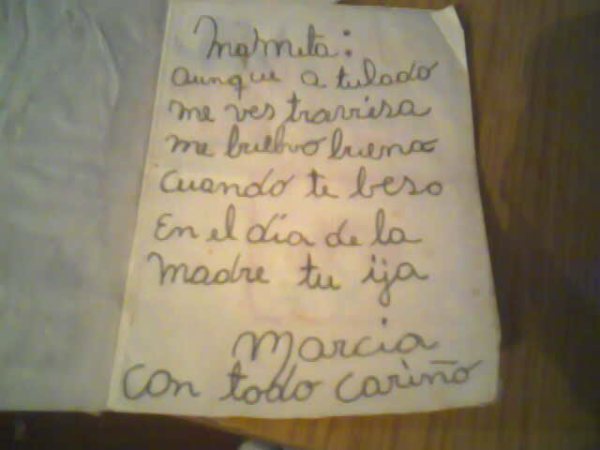 Mamita:
aunque a tulado
me ves traviesa
me buelvo buena
cuando te beso
En el día de la
madre tu ija
Marcia
con todo cariño